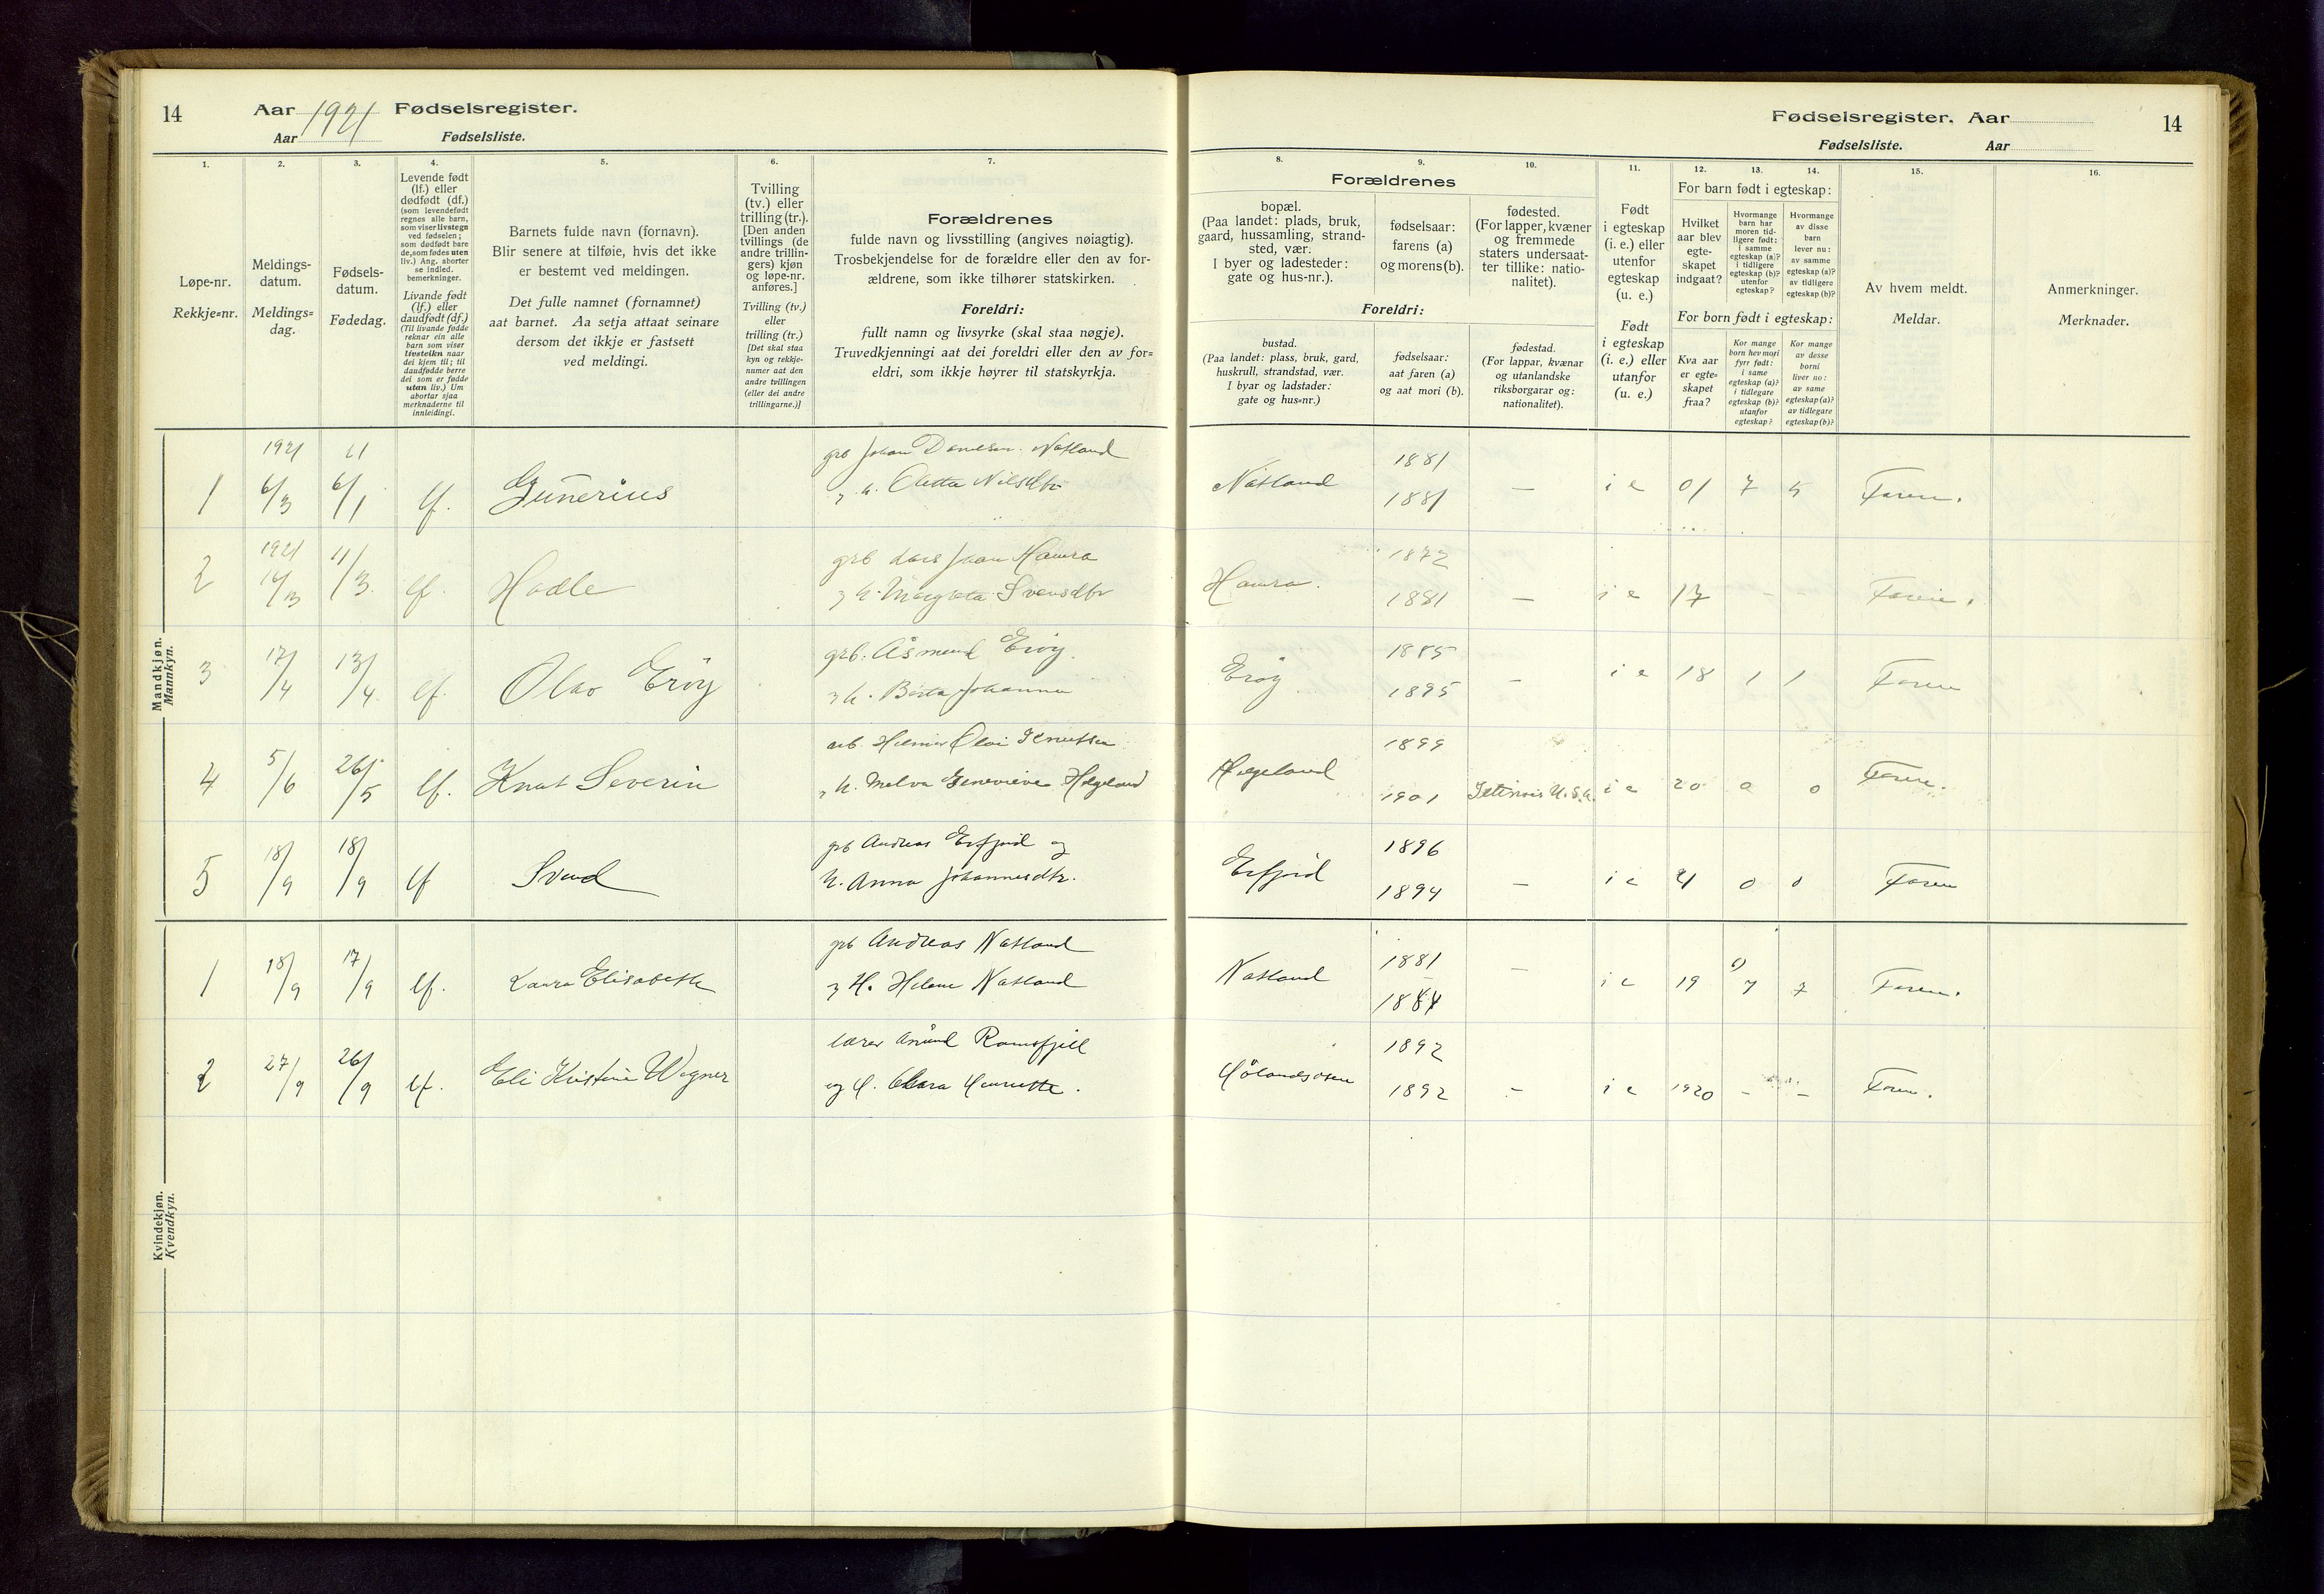 14
Aar 1921 Fødselsregister.
Aar Fødselsliste.
1.
2.
3.
4.
5.
6.
7.
Løpe-nr.
Rekkje=nr.
Meldings-
datum.
Meldings=
dag.
Fødsels-
datum.
Fødedag.
Levende født
(lf.) eller
dødfødt (df.)
(som levendefødt
regnes alle barn,
som viser livstegn
ved fødselen;
som dødfødt bare
de, som fødes uten
liv.) Ang. aborter
se indled.
bemerkninger.
Livande født
(lf.) eller
daudfødt (df.)
(Til livande fødde
reknar ein alle
barn som viser
livsteikn naar
dei kjem til; til
daudfødde berre
dei som er fødde
utan liv.) Um
abortar sjaa
merknaderne til
innleidingi.
Barnets fulde navn (fornavn).
Blir senere at tilføie, hvis det ikke
er bestemt ved meldingen.
Det fulle namnet (fornamnet)
aat barnet. Aa setja attaat seinare
dersom det ikkje er fastsett
ved meldingi.
Tvilling
(tv.) eller
trilling (tr.).
[Den anden
tvillings (de
andre trillin-
gers) kjøn
og løpe-nr.
anføres.]
Tvilling (tv.)
eller
trilling (tr.)
[Det skal staa
kyn og rekkje-
numer aat den
andre tvillingen
(eller dei andre
trillingarne.)]
Forældrenes
fulde navn og livsstilling (angives nøiagtig).
Trosbekjendelse for de forældre eller den av for-
ældrene, som ikke tilhører statskirken.
Foreldri:
fullt namn og livsyrke (skal staa nøgje).
Truvedkjenningi aat dei foreldri eller den av for=
eldri, som ikkje høyrer til statskyrkja.
Mandkjøn.
Mannkyn.
1 1921 6/3 21 6/1 lf. Gunerius
grb Johan Danielsen Natland
og h. Oletta Nilsdtr
2 1921 14/3 11/3 lf. Hadle
grb Lars Johan Hamra
og h. Margreta Svensdtr
3 17/4 13/4 lf. Olav Erøy
grb. Åsmund Erøy.
og h. Berta Johanna
4 5/6 26/5 lf. Knut Severin
arb. Hilmer Olai Knutsen
og h. Melva Genevieve Helgeland
5 18/9 18/9 lf Svend
grb Andreas Erfjord og
h. Anna Johannesdtr.
Kvindekjøn.
Kvendkyn.
1 18/9 17/9 lf. Laura Elisabeth
grb Andreas Natland
og H. Helene Natland
2 27/9 26/9 lf. Eli Kristine Wegner
lærer Anund Ramsfjell
og h. Clara Henriette.
Fødselsregister. Aar
14
Fødselsliste. Aar
8.
9.
10.
11.
12.
13.
14.
15.
16.
Forældrenes
bopæl.
(Paa landet: plads, bruk,
gaard, hussamling, strand-
sted, vær.
I byer og ladesteder:
gate og hus-nr.).
fødselsaar:
farens (a)
og morens (b).
fødested.
(For lapper, kvæner
og fremmede
staters undersaat-
ter tillike: natio-
nalitet).
Foreldri:
bustad.
(Paa landet: plass, bruk, gard,
huskrull, strandstad, vær.
I byar og ladstader:
gate og hus=nr.)
fødselsaar:
aat faren (a)
og aat mori (b).
fødestad.
(For lappar, kvænar
og utanlandske
riksborgarar og:
nationalitet).
Født
i egteskap
(i. e.) eller
utenfor
egteskap
(u. e.)
Født
i egteskap
(i. e.) eller
utanfor
(u. e.)
For barn født i egteskap:
Hvilket
aar blev
egte-
skapet
indgaat?
Hvormange
barn har
moren tid-
ligere født:
i samme
egteskap (a)?
i tidligere
egteskap (b)?
utenfor
egteskap?
Hvormange
av disse
barn
lever nu:
av samme
egteskap (a)?
av tidligere
egteskap (b)?
For born født i egteskap:
Kva aar
er egte=
skapet
fraa?
Kor mange
born hev mori
fyrr født:
i same
egteskap (a)?
i tidlegare
egteskap (b)?
utanfor
egteskap?
Kor mange
av desse
borni
liver no:
av same
egteskap (a)?
av tidlegare
egteskap (b)?
Av hvem meldt.
Meldar.
Anmerkninger.
Merknader.
Natland 1881 1881 — i e 01 7 5 Faren.
Hamra. 1872 1881 — i e 17 Faren.
Erøy 1885 1895 — i e 18 1 1 Faren
Helgeland 1899 1901 U.S.A. i e 20 0 0 Faren.
Erfjord 1896 1894 — i e 21 0 0 Faren
Natland 1881 1884 — i e 19 7 7 Faren.
Hålandsosen 1892 1892 — i e 1920 — — Faren.